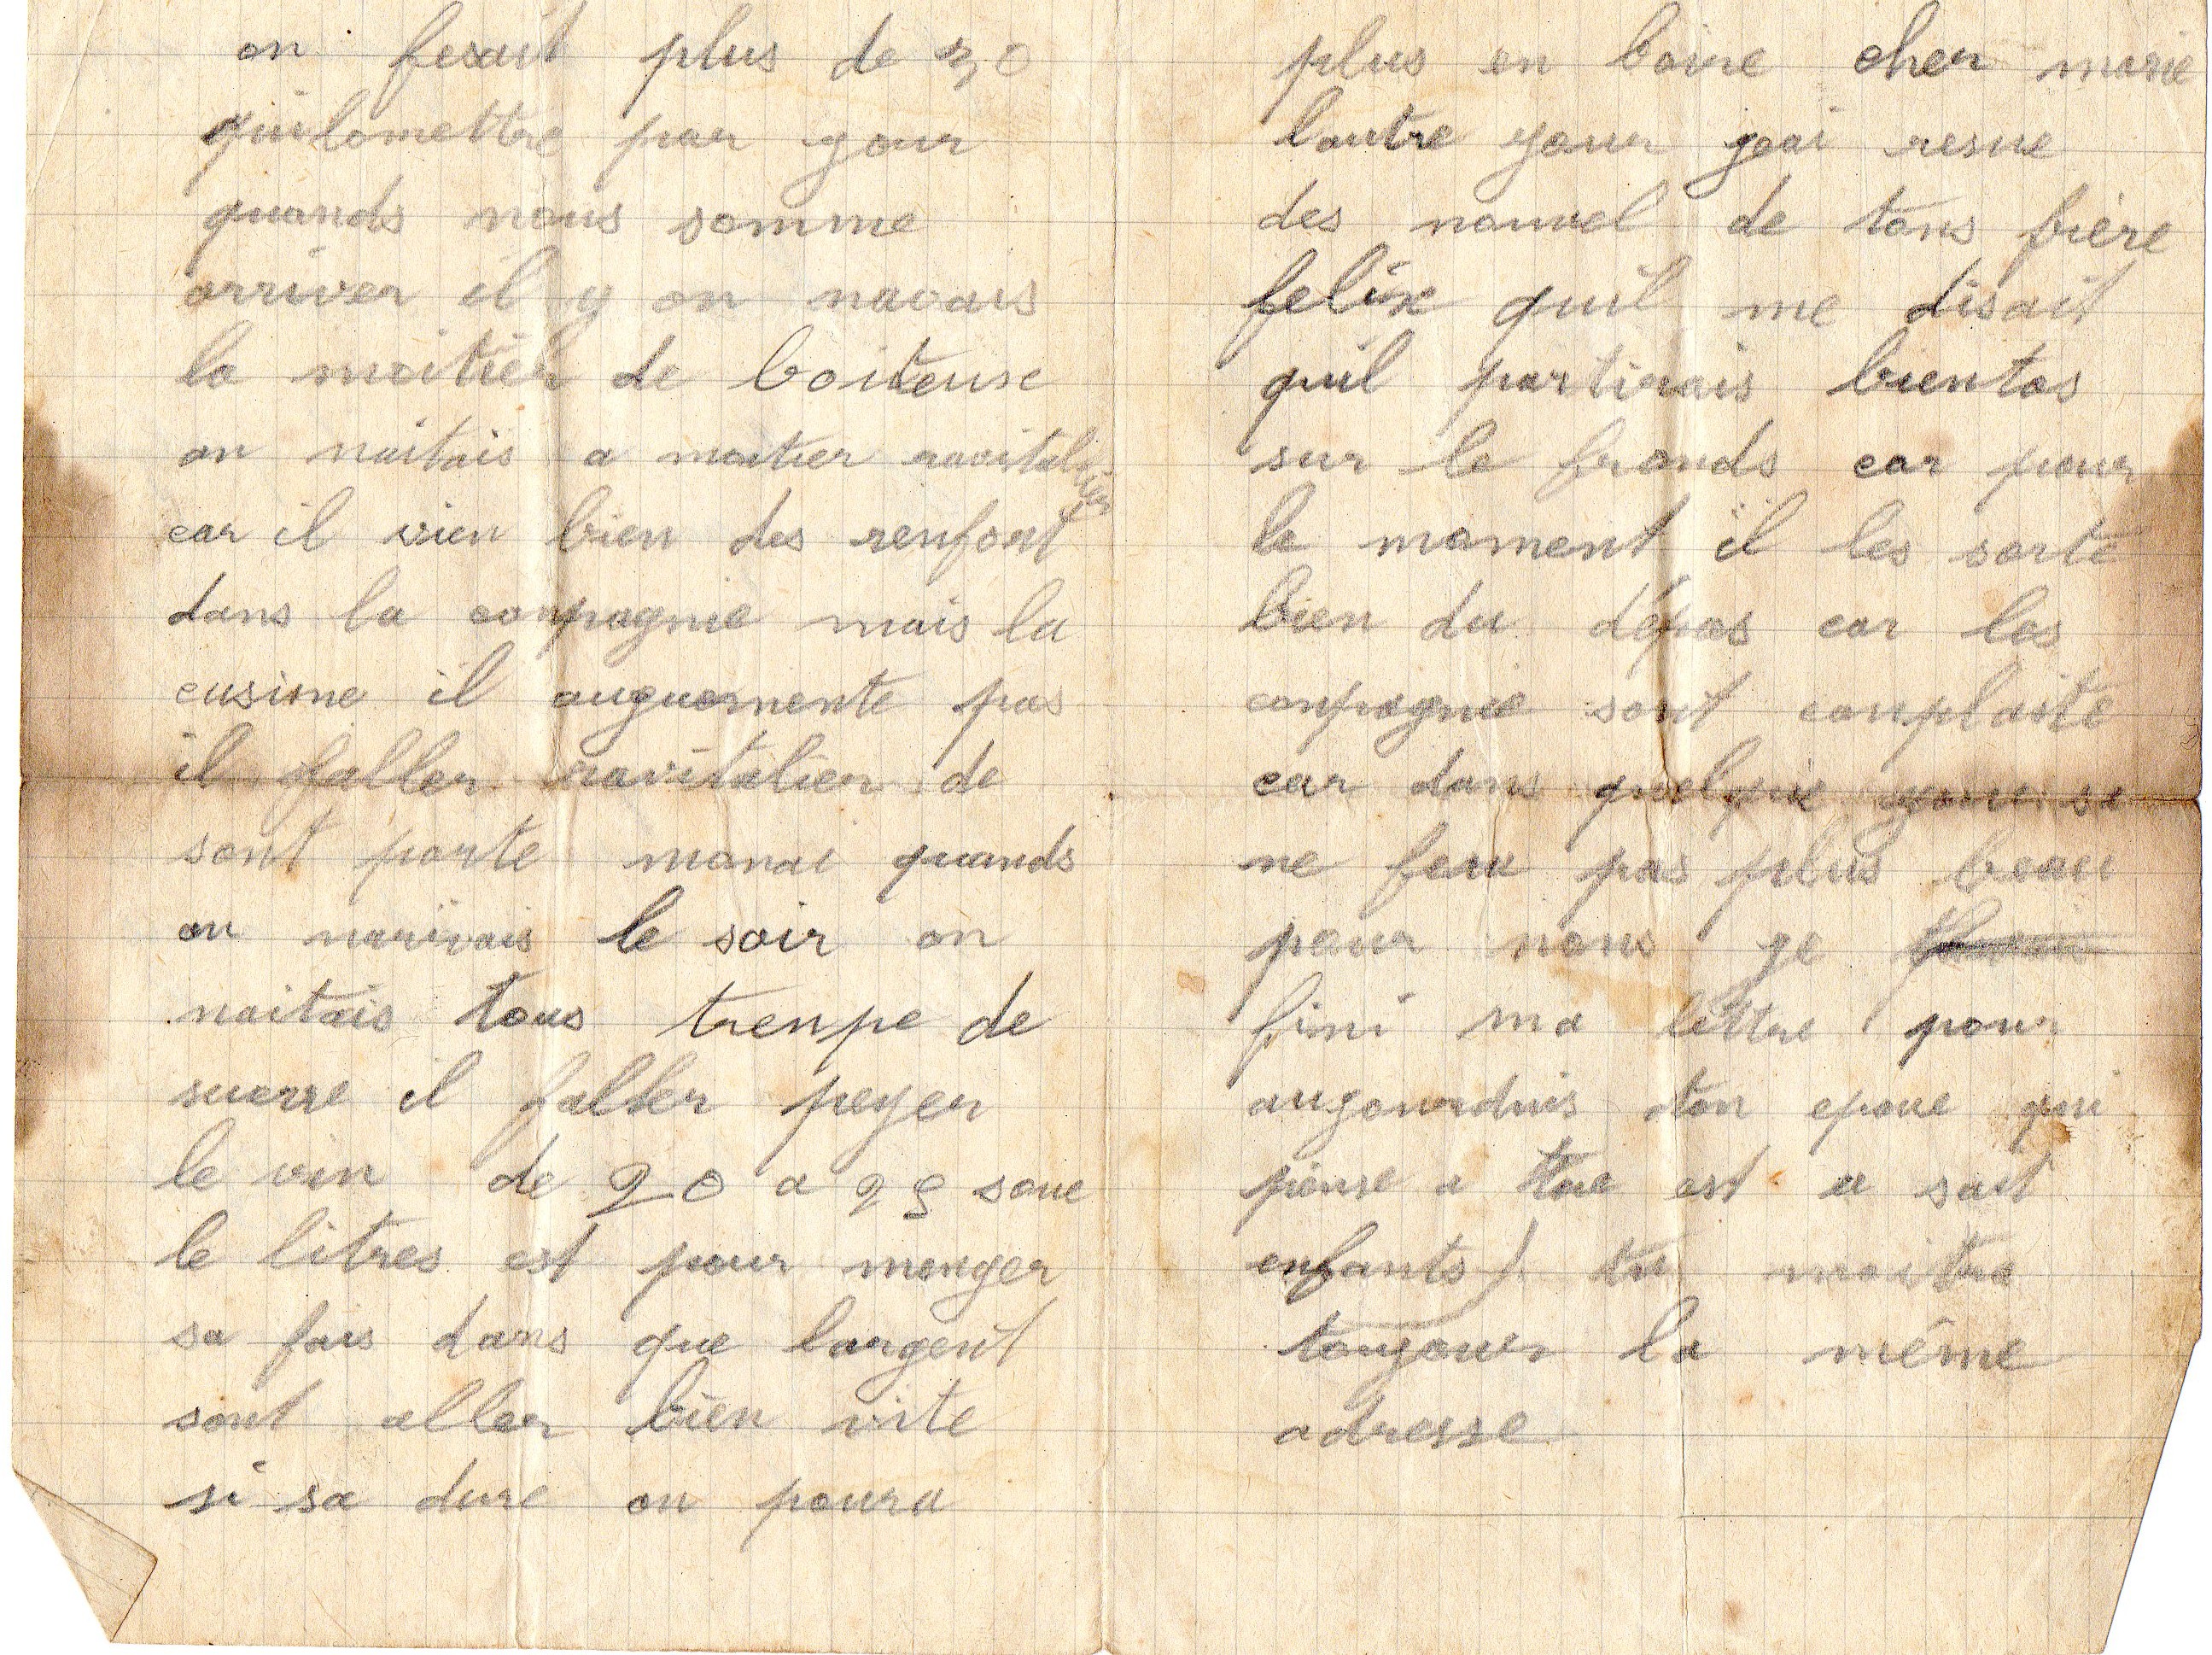 on fesait plus de 30
quilomettre par gour
quands nous somme
arriver il y on navais
la moitier de boiteuse
on naitais a moitier ravitalier
car il vien bien des renfort
dans la conpagnie mais la
cusisne il auguemente pas
il faller ravitalier de
sont porte monai quands
on narivais le soir on
naitais tous trenpe de
suerre il faller peyer
le vin de 20 a 25 soue
le litres est pour menger
sa fais dans que largent
sont aller bien vite
si sa dure on poura
plus en boire cher marie
lautre gour geai resue
des nouvel de tons frère
felix quil me disait
quil partirais bientos
sur le fronds car pour
le moment il les sorte
bien du dépos car les
conpagnie sont conplaite
car dans quelque gour sa
ne fera pas plus beau
pour nous ge
fini ma lettre pour
augourduis ton epoue qui
piense a toue est a sait
enfants) tu maitra
tougours la même
adresse